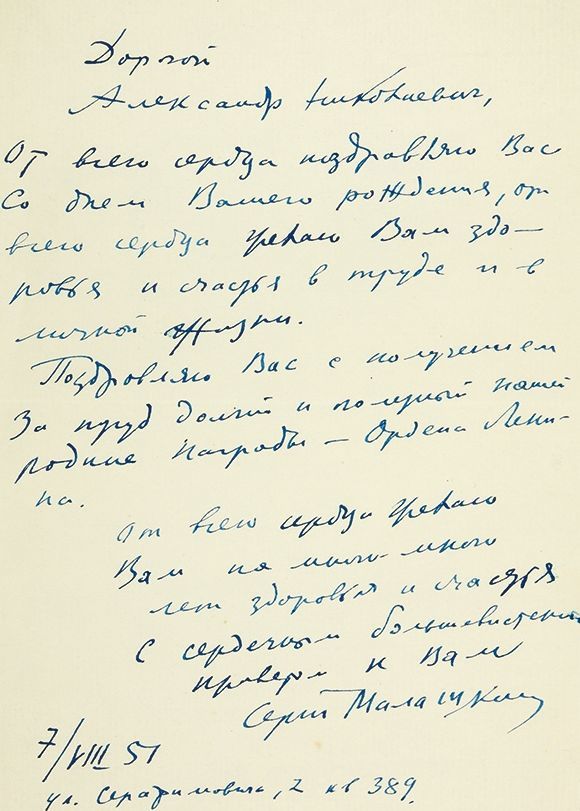 Дорогой
Александр Николаевич,
От всего сердца поздравляю Вас
Со днем Вашего рождения, от
всего сердца желаю Вам здо-
ровья и счастья в труде и в
личной жизни.
Поздравляю Вас с получением
За труд долгий и полезный нашей
родине Награды – Ордена Лени-
на.
От всего сердца желаю
Вам на много-много
лет здоровья и счастья
С сердечным большевистским
приветом к Вам
Сергей Малашкин
7/VIII 51
ул. Серафимовича, 2 кв 389.